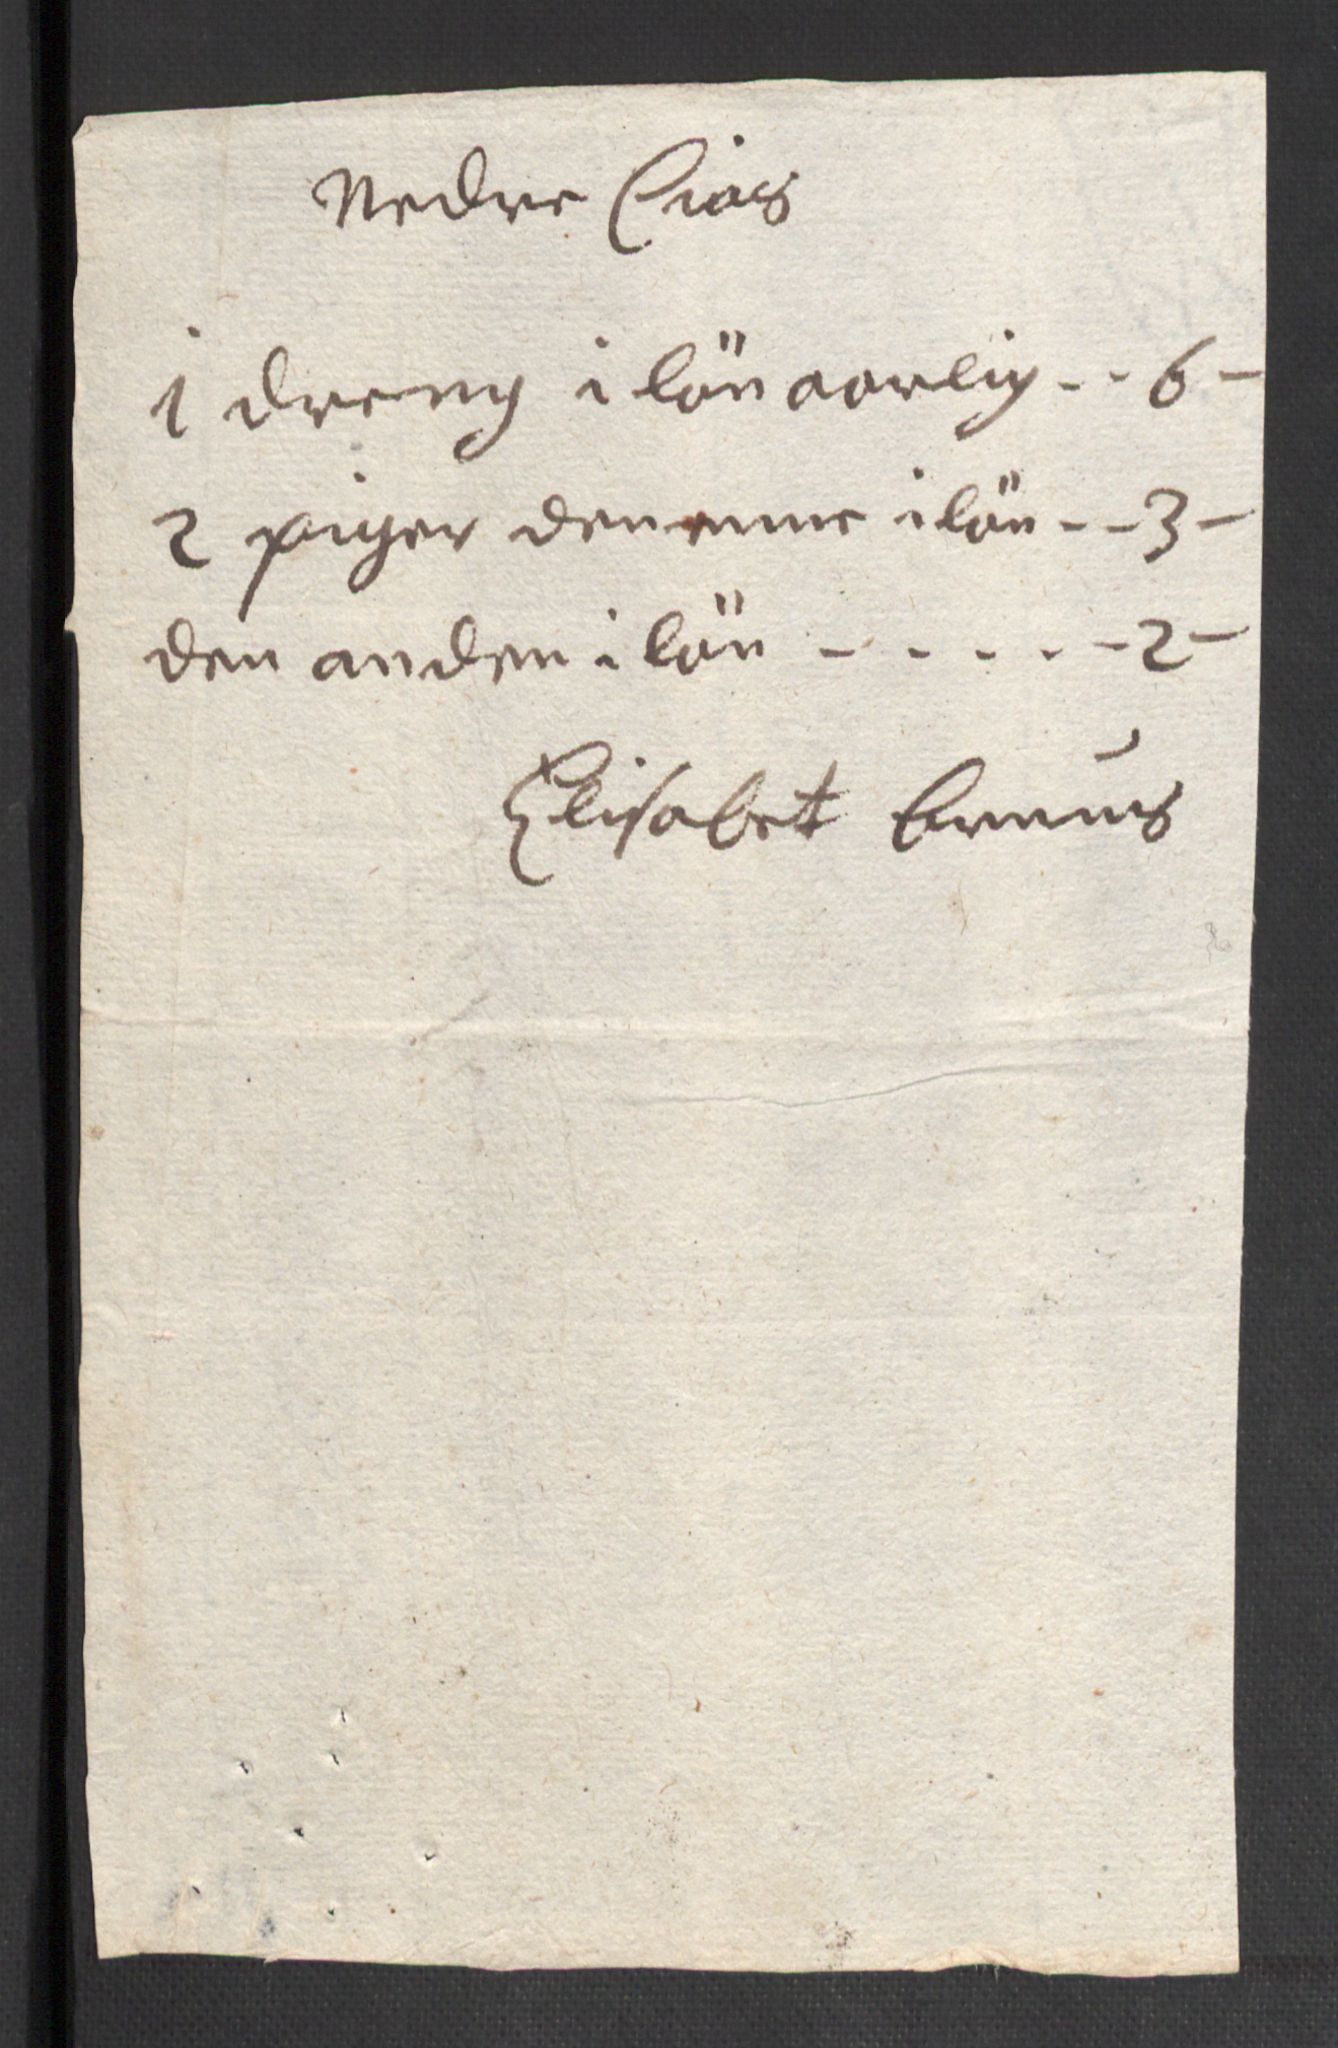 Nedre Lias
1 dreng i lön aarlig - - 6 -
2 piger den enne i lön - - 3 -
den anden i lön - - - - - 2 -
Elisabet